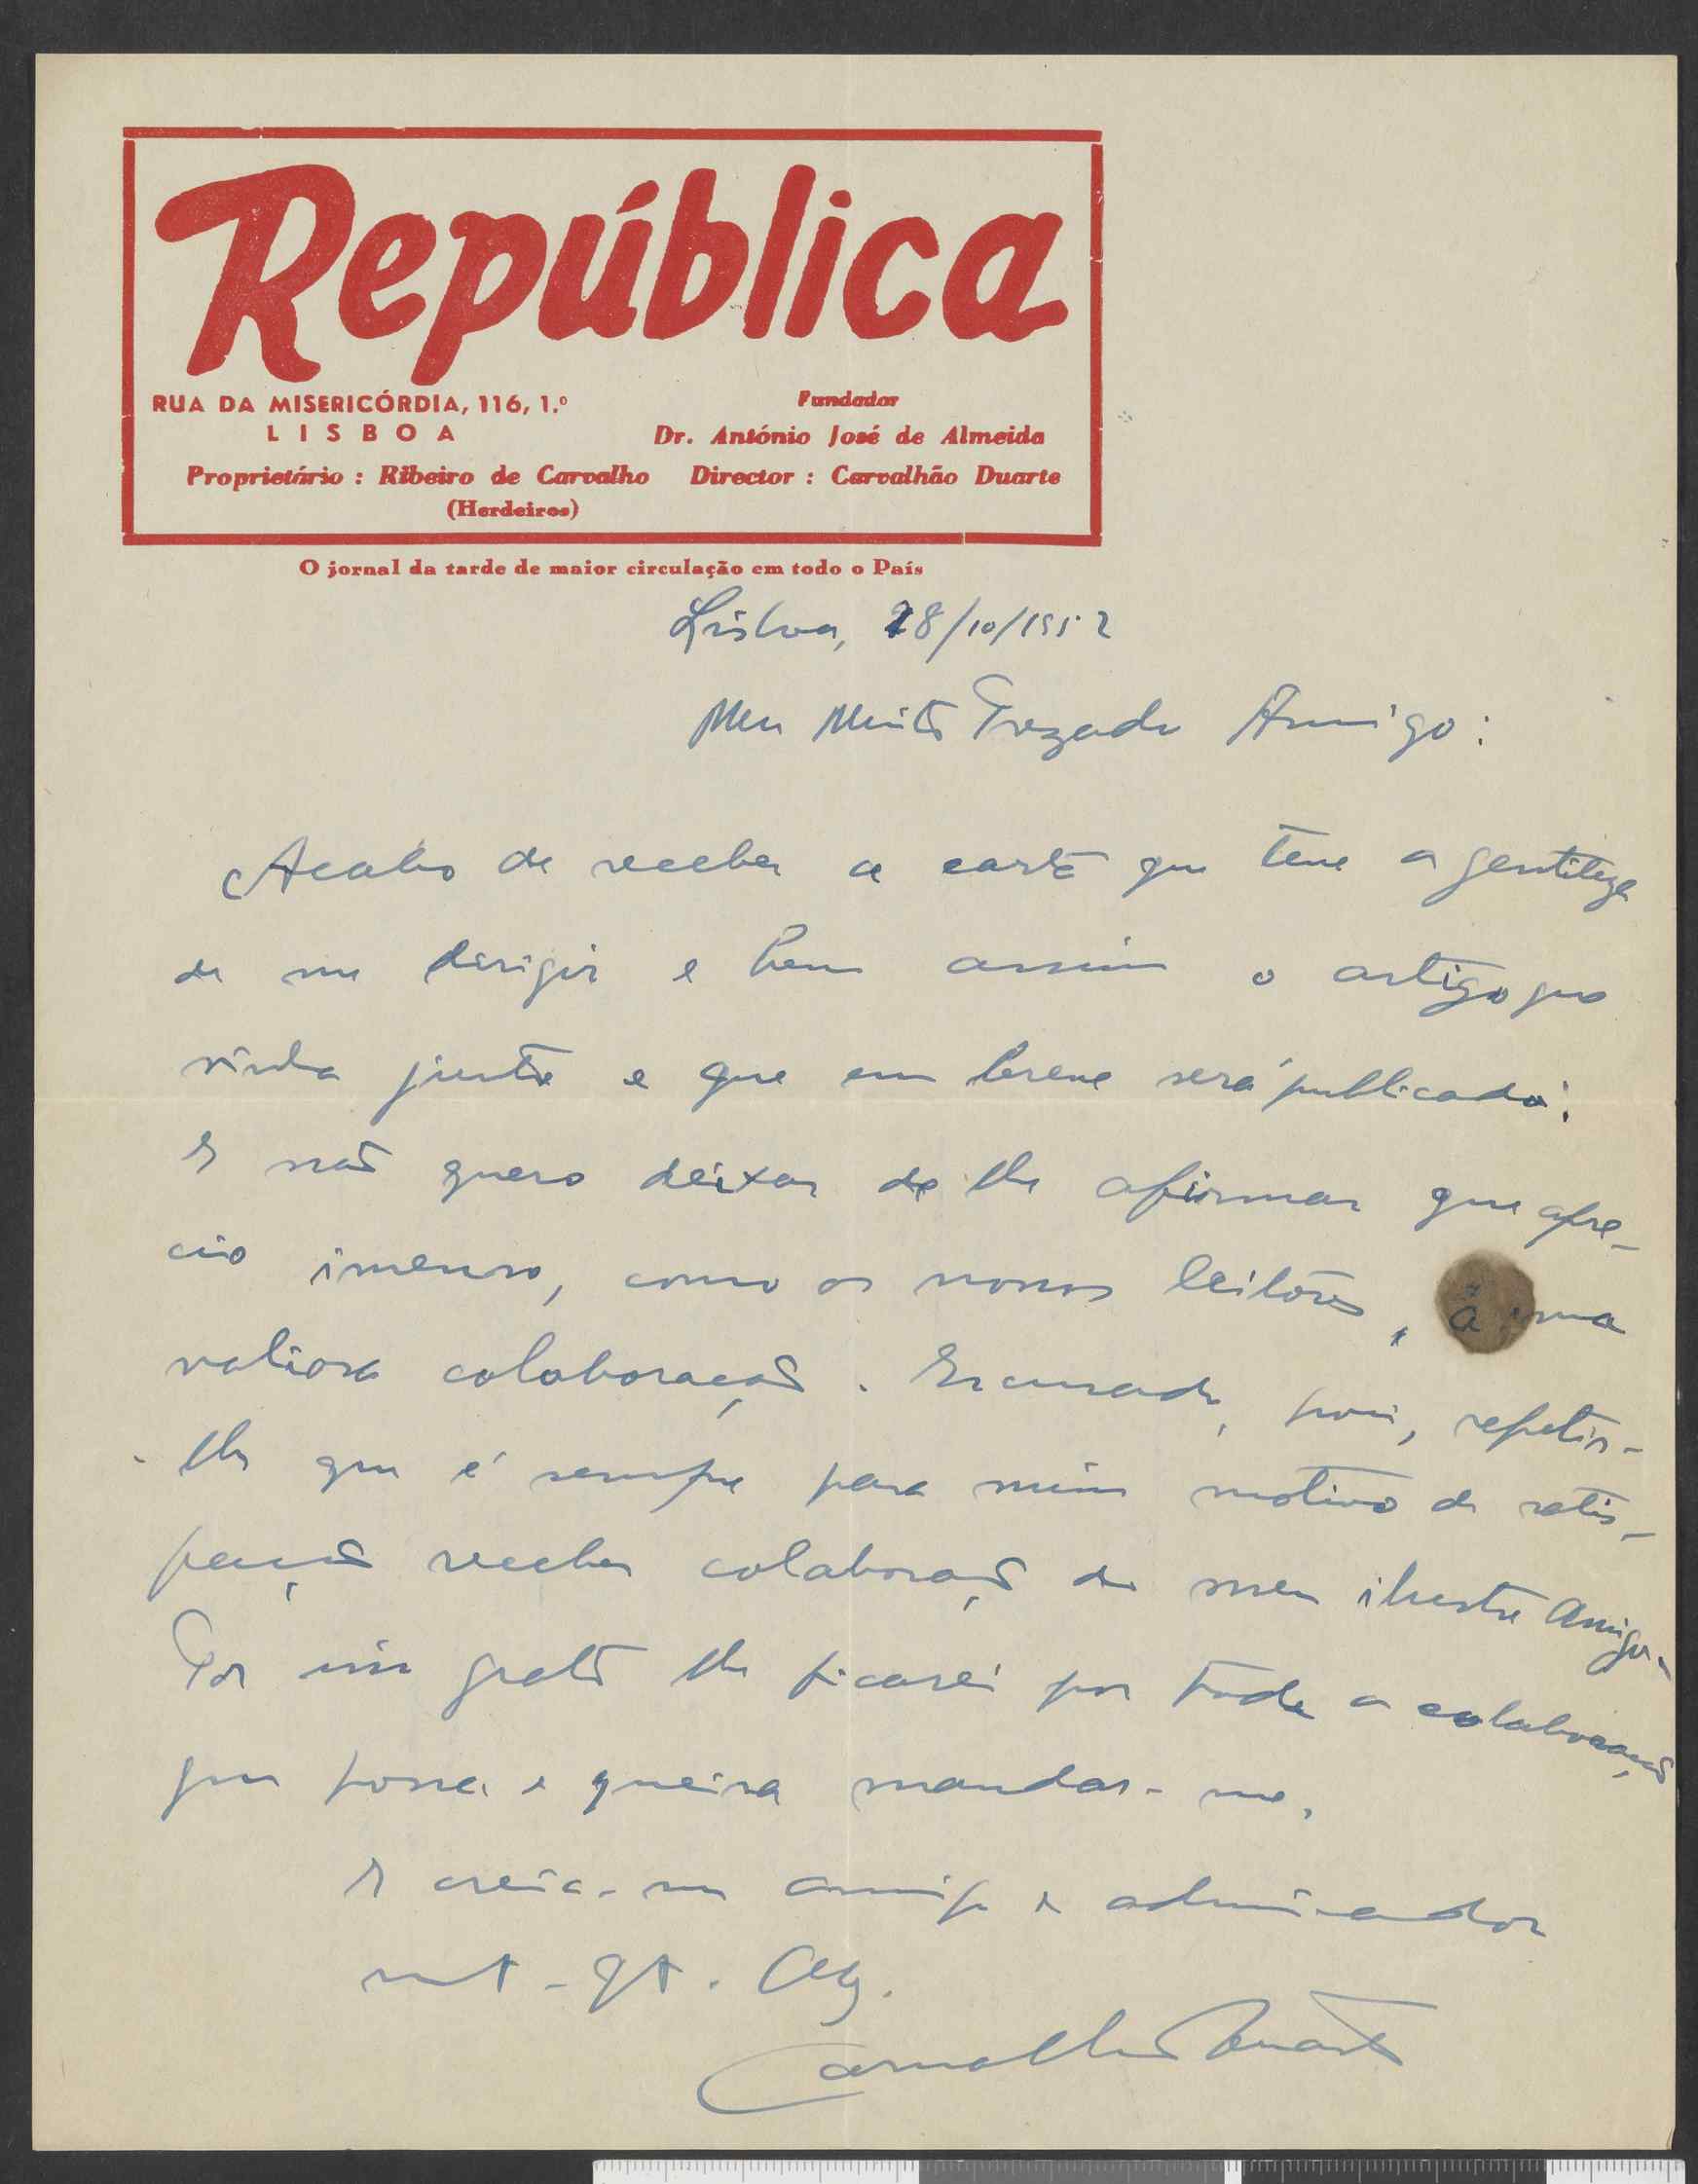 República
RUA DA MISERICÓRDIA, 116, 1.º
LISBOA
Fundador
Dr. António José de Almeida
Proprietário : Ribeiro de Carvalho
(Herdeiros)
Director : Carvalhão Duarte
O jornal da tarde de maior circulação em todo o País
Lisboa, 28/10/1952
Meu Muito Prezado Amigo:
Acabo de receber a carta que teve a gentileza
de me dirigir e bem assim o artigo que
vinha junto e que em breve será publicado.
E não quero deixar de lhe afirmar que apre-
cio imenso, como os nossos leitores, a sua
valiosa colaboração. Escusado, pois, repetir-
-lhe que é sempre para mim motivo de satis-
fação receber colaboração do meu ilustre Amigo.
Por isso grato lhe ficarei por toda a colaboração
que possa e queira mandar-me.
E creia-me amigo e admirador
mt. gt. Obg.
Carvalhão Duarte